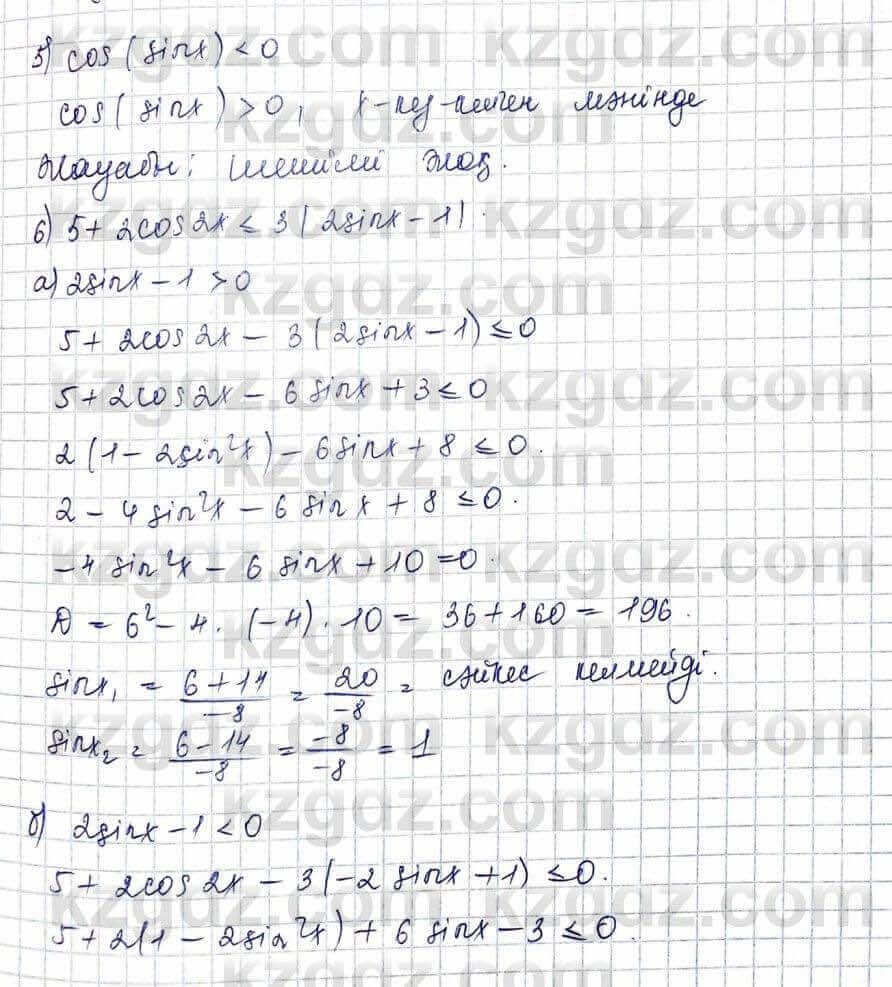 5) cos(sinx) < 0
cos(sinx) > 0, x-кез-келген мәнінде
Жауабы: шешімі жоқ.
6) 5 + 2cos2x ≤ 3|2sinx - 1|.
а) 2sinx - 1 > 0
5 + 2cos2x - 3(2sinx - 1) ≤ 0
5 + 2cos2x - 6sinx + 3 ≤ 0
2(1 - 2sin²x) - 6sinx + 8 ≤ 0.
2 - 4sin²x - 6sinx + 8 ≤ 0.
-4sin²x - 6sinx + 10 = 0.
D = 6² - 4·(-4)·10 = 36 + 160 = 196.
sinx₁ = (6+14)/(-8) = 20/(-8) = сәйкес келмейді.
sinx₂ = (6-14)/(-8) = (-8)/(-8) = 1
б) 2sinx - 1 < 0
5 + 2cos2x - 3(-2sinx + 1) ≤ 0.
5 + 2(1 - 2sin²x) + 6sinx - 3 ≤ 0.
kzgdz.com